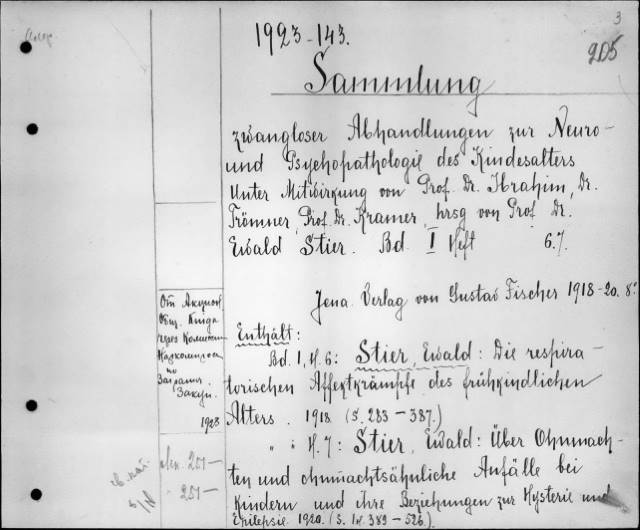 3
1923-143.
2D5
Sammlung
zwangloser Abhandlungen zur Neuro-
und Psychopathologie des Kindesalters
Unter Mitwirkung von Prof. Dr. Ibrahim, Dr.
Trömner, Prof. Dr. Kramer, hrsg von Prof. Dr.
Ewald Stier. Bd. I Heft 6.7.
Jena. Verlag von Gustav Fischer 1918-20. 8°.
Enthält:
Bd. 1, H. 6: Stier, Ewald: Die respira-
torischen Affektkrämpfe des frühkindlichen
Alters. 1918. (S. 283-387.)
" " H. 7: Stier, Ewald: Über Ohnmach-
ten und ohnmachtsähnliche Anfälle bei
Kindern und ihre Beziehungen zur Hysterie und
Epilepsie. 1920. (S. IV. 389-526).
От Акцион.
Общ. Книга
через
Наркомпроса
по
Загранич.
Закуп.
1923
251-
" 251-